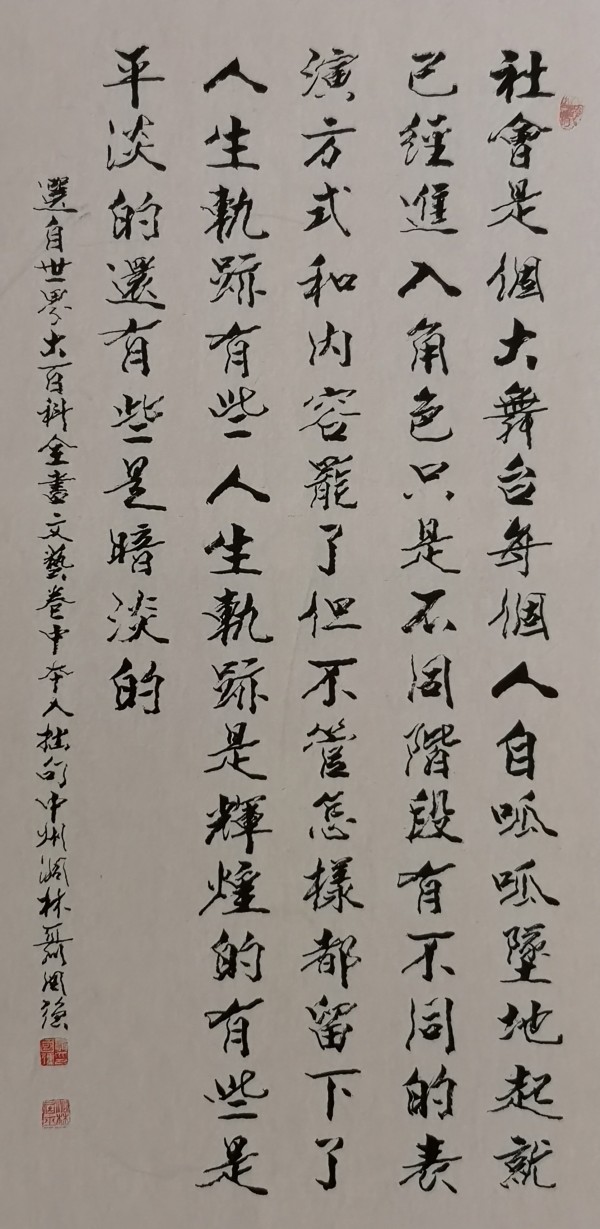 社會是個大舞台每個人自呱呱墜地起就
已經進入角色只是不同階段有不同的表
演方式和内容罷了但不管怎樣都留下了
人生軌跡有些人生軌跡是輝煌的有些是
平淡的還有些是暗淡的
選自世界大百科全書文藝卷中本人拙句中州潤林聶國強